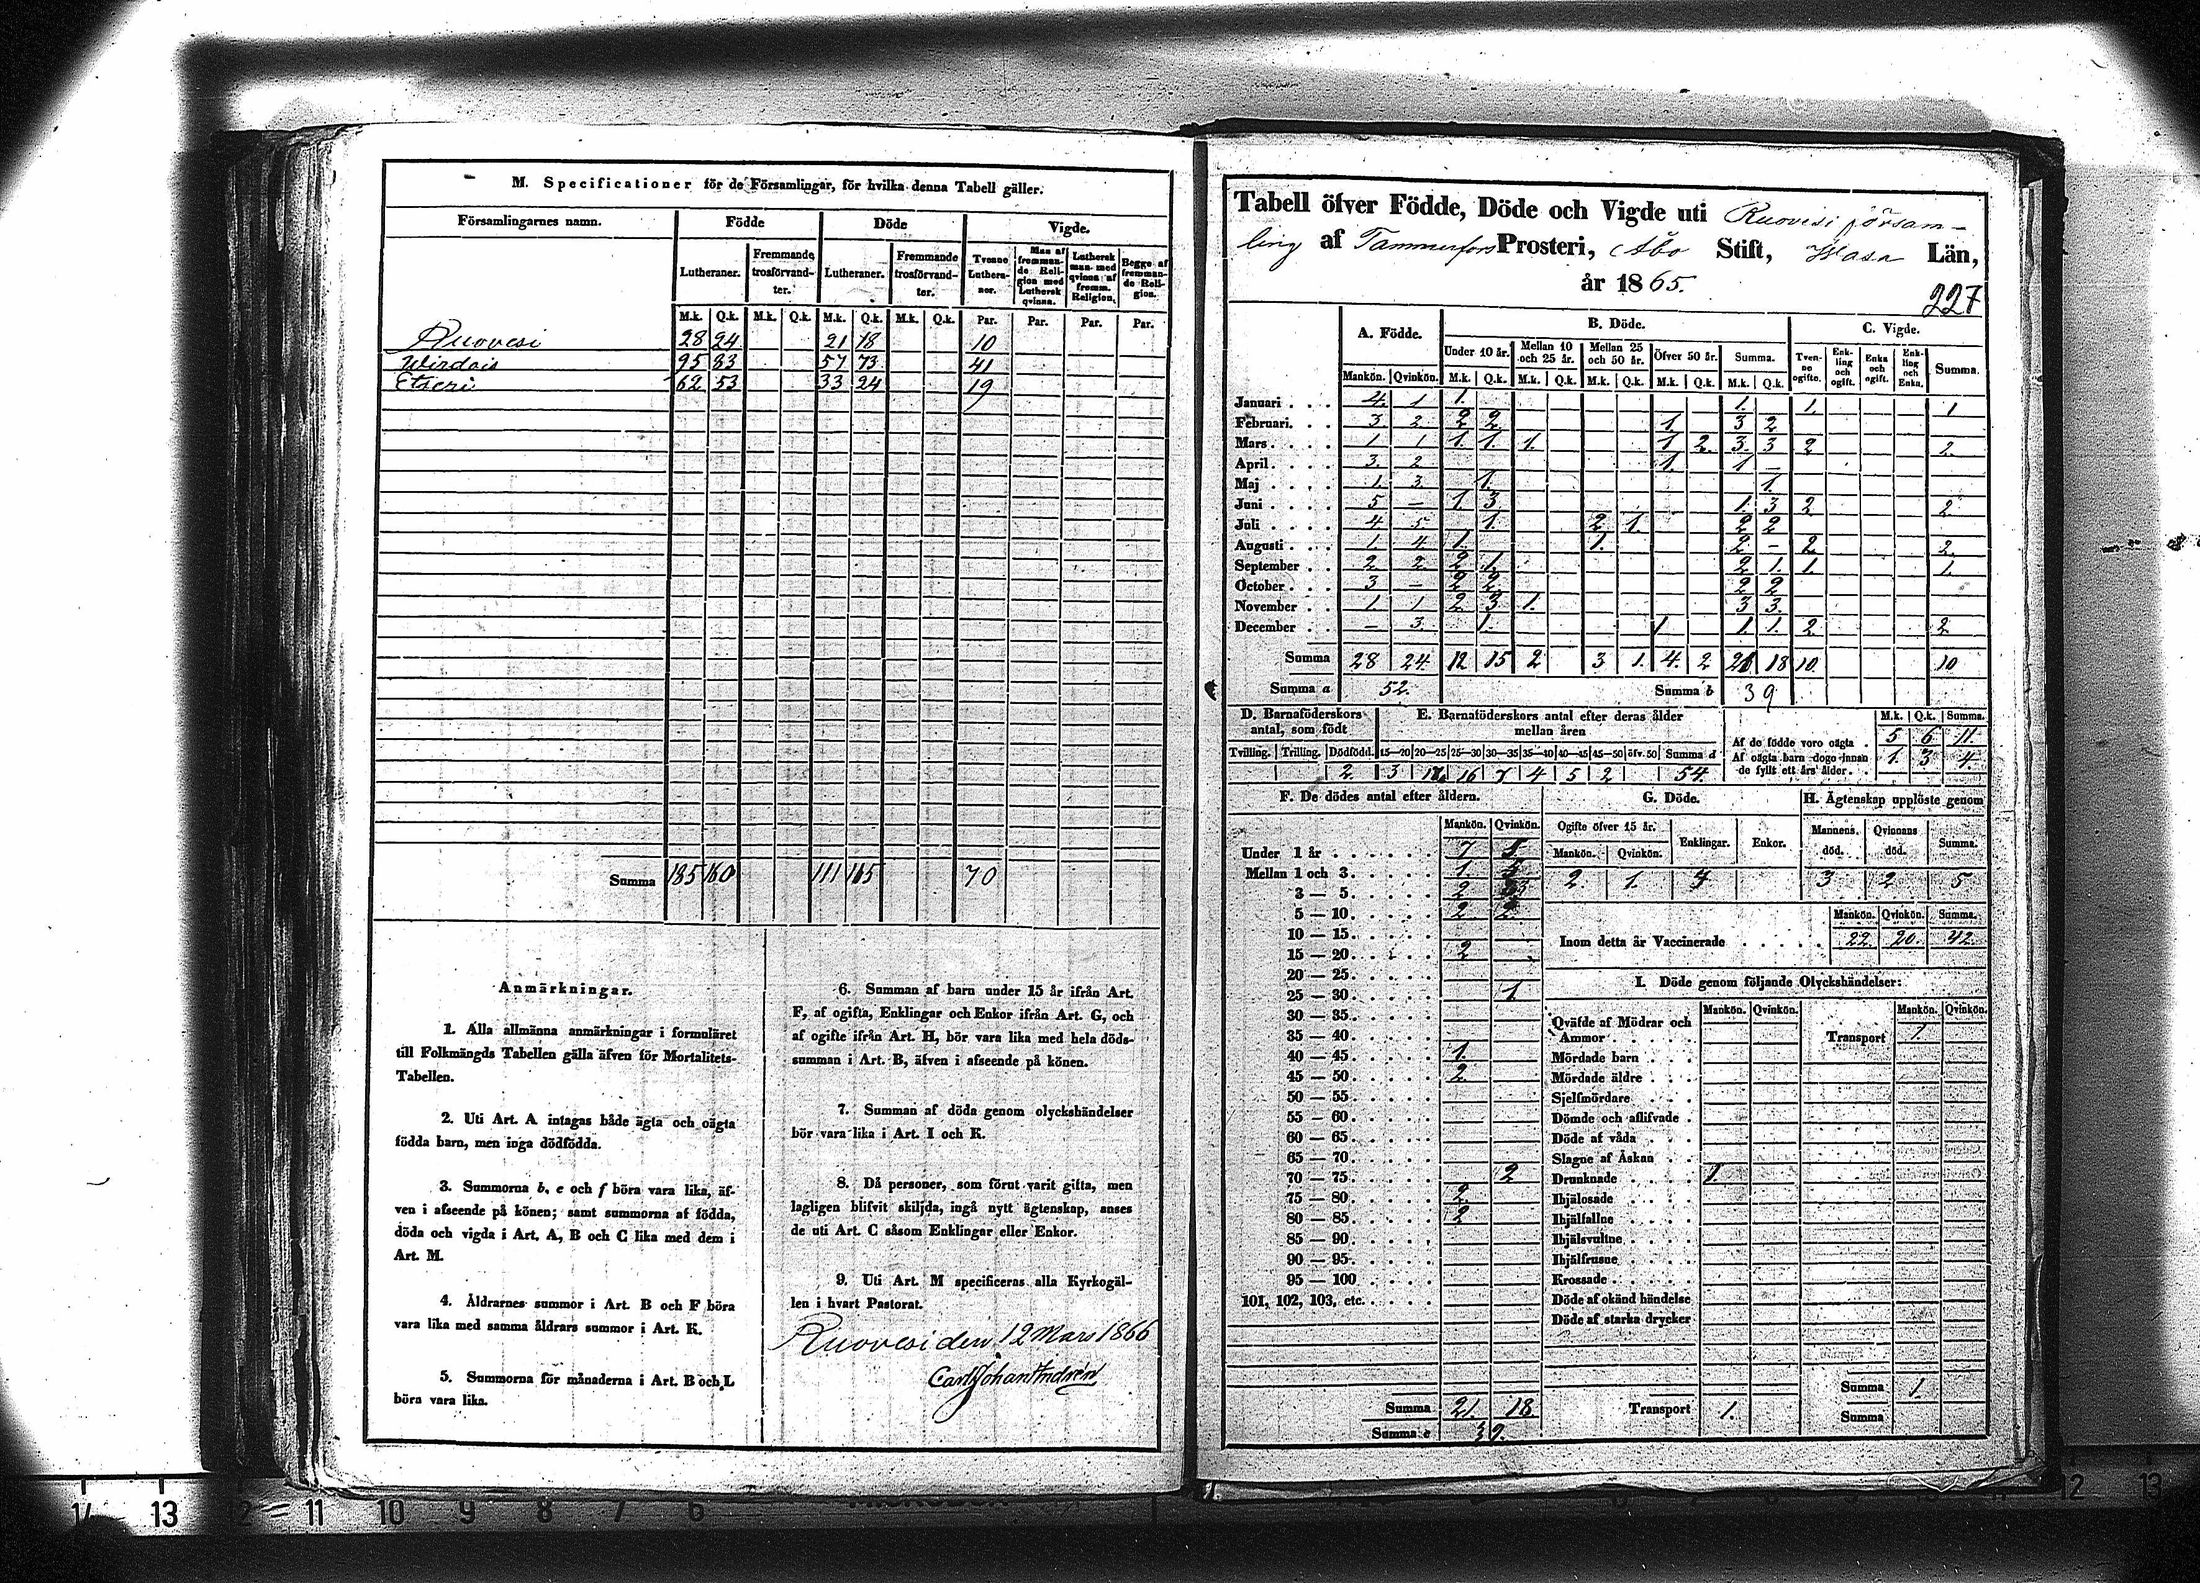 M. Specificationer för de Församlingar, för hvilka denna Tabell gäller.
Församlingarnes namn. Födde Döde Vigde.
Lutheraner. Fremmande trosförvandter. Lutheraner. Fremmande trosförvandter. Tvenne Lutheraner. Man af fremmande Religion med Luthersk qvinna. Luthersk man med qvinna af fremm. Religion. Begge af fremmande Religion.
M.k. Q.k. M.k. Q.k. M.k. Q.k. M.k. Q.k. Par. Par. Par. Par.
Ruovesi 28 24 21 18 10
Wirdois 95 83 57 73 41
Etseri 62 53 33 24 19
Summa 185 160 111 115 70
Anmärkningar.
1. Alla allmänna anmärkningar i formuläret
till Folkmängds Tabellen gälla äfven för Mortalitets-
Tabellen.
2. Uti Art. A intagas både ägta och oägta
födda barn, men inga dödfödda.
3. Summorna b, e och f böra vara lika, äf-
ven i afseende på könen; samt summorna af födda,
döda och vigda i Art. A, B och C lika med dem i
Art. M.
4. Åldrarnes summor i Art. B och F böra
vara lika med samma åldrars summor i Art. K.
5. Summorna för månaderna i Art. B och L
böra vara lika.
6. Summan af barn under 15 år ifrån Art.
F, af ogifta, Enklingar och Enkor ifrån Art. G, och
af ogifte ifrån Art. H, bör vara lika med hela döds-
summan i Art. B, äfven i afseende på könen.
7. Summan af döda genom olyckshändelser
bör vara lika i Art. I och K.
8. Då personer, som förut varit gifta, men
lagligen blifvit skiljda, ingå nytt ägtenskap, anses
de uti Art. C såsom Enklingar eller Enkor.
9. Uti Art. M specificeras alla Kyrkogäl-
len i hvart Pastorat.
Ruovesi den 12 Mars 1866
Carl Johan Andrén
Tabell öfver Födde, Döde och Vigde uti Ruovesi försam-
ling af Tammerfors Prosteri, Åbo Stift, Wasa Län,
år 1865.
227
A. Födde. B. Döde. C. Vigde.
Under 10 år. Mellan 10 och 25 år. Mellan 25 och 50 år. Öfver 50 år. Summa. Tvenne ogifte. Enkling och ogift. Enka och ogift. Enkling och Enka. Summa.
Mankön. Qvinkön. M.k. Q.k. M.k. Q.k. M.k. Q.k. M.k. Q.k. M.k. Q.k.
Januari 4. 1 1. 1. 1. 1
Februari 3 2 2 2 1. 3 2
Mars 1 1 1. 1. 1. 1 2. 3. 3 2 2.
April 3. 2 1. 1 –
Maj 1. 3 1. 1.
Juni 5 – 1 3 1. 3 2 2
Juli 4 5 1. 2 1. 2 2
Augusti 1. 4 1. 1. 2 – 2. 2.
September 2 2 2 1. 2 1. 1. 1.
October 3 – 2 2 2 2
November 1. 1 2 3 1. 3 3.
December – 3. 1. 1 1. 1. 2 2
Summa 28 24. 12 15 2 3 1. 4. 2 21 18 10. 10
Summa a 52. Summa b 39
D. Barnaföderskors antal, som födt
E. Barnaföderskors antal efter deras ålder mellan åren
M.k. Q.k. Summa.
Af de födde voro oägta 5 6 11.
Af oägta barn dogo innan de fyllt ett års ålder 1. 3 4.
Tvilling. Trilling. Dödfödd. 15—20 20—25 25—30 30—35 35—40 40—45 45—50 öfv. 50 Summa d
2 3 17. 16 7 4 5 2 54.
F. De dödes antal efter åldern.
Mankön. Qvinkön.
Under 1 år 7 5
Mellan 1 och 3 1. 5
3 — 5 2 3
5 — 10 2 2
10 — 15
15 — 20 2
20 — 25
25 — 30 1.
30 — 35
35 — 40
40 — 45 1.
45 — 50 2.
50 — 55
55 — 60
60 — 65
65 — 70
70 — 75 2
75 — 80 2.
80 — 85 2
85 — 90
90 — 95
95 — 100
101, 102, 103, etc.
Summa 21. 18.
Summa e 39.
G. Döde.
Ogifte öfver 15 år. Enklingar. Enkor.
Mankön. Qvinkön.
2. 1. 4
H. Ägtenskap upplöste genom
Mannens död. Qvinnans död. Summa.
3 2 5
Mankön. Qvinkön. Summa.
Inom detta år Vaccinerade 22. 20. 42.
I. Döde genom följande Olyckshändelser:
Mankön. Qvinkön. Mankön. Qvinkön.
Qväfde af Mödrar och Ammor
Transport 1.
Mördade barn
Mördade äldre
Sjelfmördare
Dömde och aflifvade
Döde af våda
Slagne af Åskan
Drunknade 1.
Ihjälosade
Ihjälfallne
Ihjälsvultne
Ihjälfrusne
Krossade
Döde af okänd händelse
Döde af starka drycker
Summa 1.
Transport 1.
Summa
14 13 12 11 10 9 8 7 6
12 13